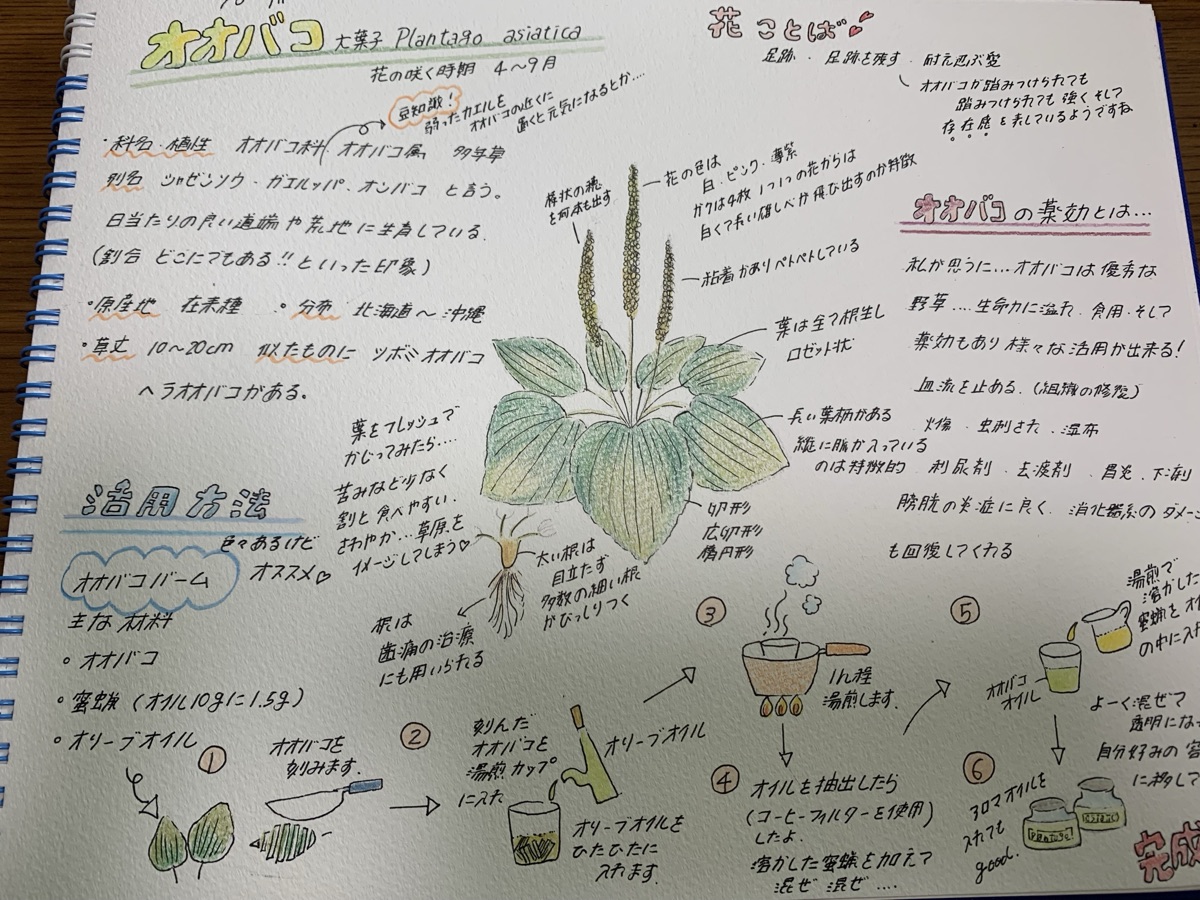 オオバコ 大葉子 Plantago asiatica
花の咲く時期 4〜9月
豆知識!
弱ったカエルを
オオバコの近くに
置くと元気になるとか....
・科名・植性 オオバコ科 オオバコ属 多年草
別名 シャゼンソウ・ガエルッパ、オンバコ と言う。
日当たりの良い道端や荒地に生育している.
(割合 どこにでもある!! といった印象)
・原産地 在来種 ・分布 北海道〜沖縄
・草丈 10〜20cm 似たものに ツボミオオバコ
ヘラオオバコがある。
花ことば
足跡・足跡を残す・耐え忍ぶ愛
オオバコが踏みつけられても
踏みつけられても 強く そして
存在感を表しているようですね
棒状の穂
を何本も出す
花の色は
白、ピンク・薄紫
ガクは4枚 1つ1つの花からは
白くて長い雄しべが飛び出すのが特徴
粘着がありベトベトしている
葉は全て根生し
ロゼット状
長い葉柄がある
縦に脈が入っている
のは特徴的
卵形
広卵形
楕円形
葉をフレッシュで
かじってみたら....
苦みなど少なく
割と食べやすい.
さわやか...草原を
イメージしてしまう♡
太い根は
目立たず
多数の細い根
がびっしりつく
根は
歯痛の治療
にも用いられる
オオバコの薬効とは...
私が思うに...オオバコは優秀な
野草....生命力に溢れ、食用・そして
薬効もあり様々な活用が出来る!
血流を止める.(組織の修復)
火傷・虫刺され、湿布
利尿剤、去痰剤、胃炎、下剤
膀胱の炎症に良く、消化器系のダメー
も回復してくれる
活用方法
色々あるけど
オススメ♡
オオバコバーム
主な材料
・オオバコ
・蜜蝋 (オイル10gに1.5g)
・オリーブオイル
① オオバコを
刻みます.
② 刻んだ
オオバコを
湯煎カップ
に入れ
オリーブオイル
オリーブオイルを
ひたひたに
入れます.
③
1h程
湯煎します.
④ オイルを抽出したら
(コーヒーフィルターを使用)
したよ.
溶かした蜜蝋を加えて
混ぜ 混ぜ ....
⑤
湯煎で
溶かした
蜜蝋をオイ
の中に入れ
オオバコ
オイル
よーく混ぜて
透明にな
自分好みの容
に移して
⑥ アロマオイルを
入れても
good.
Plantago
完成